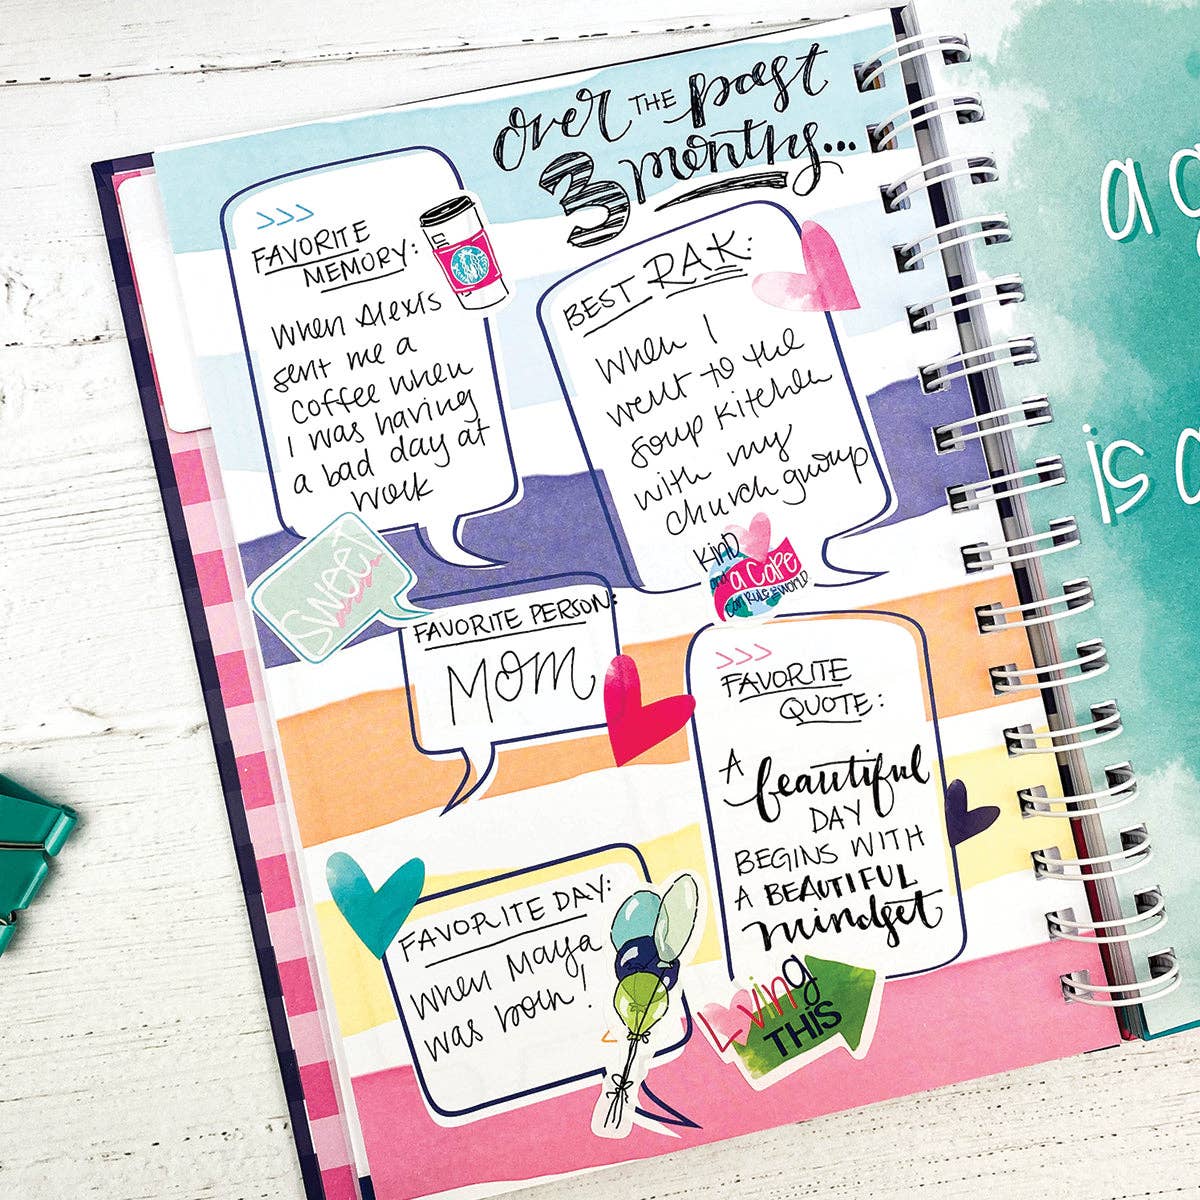 over THE past
3 months...
>>>
FAVORITE
MEMORY:
When Alexis
sent me a
coffee when
I was having
a bad day at
work
BEST RAK:
When I
went to the
soup kitchen
with my
church group
Sweet
kind
and a cape
can rule the world
FAVORITE PERSON:
MOM
>>>
FAVORITE
QUOTE:
A beautiful
DAY
BEGINS WITH
A BEAUTIFUL
mindset
FAVORITE DAY:
When Maya
was born!
Loving
THIS
a
is